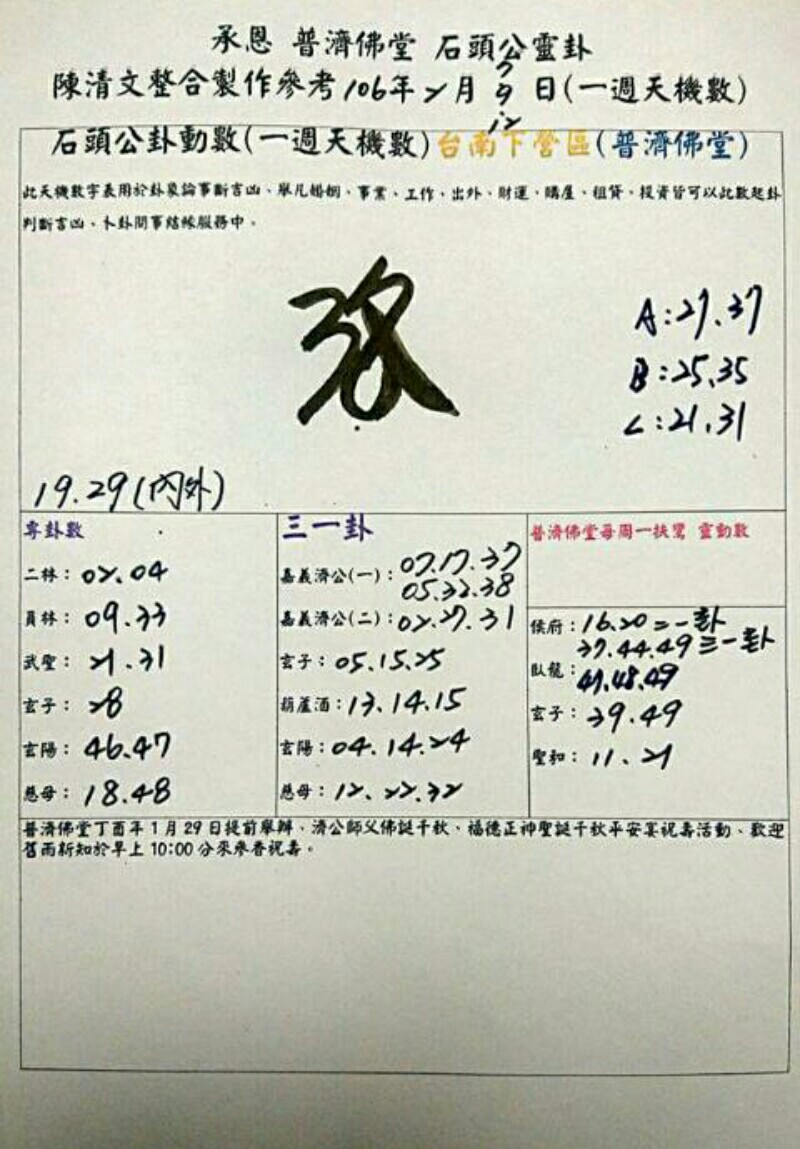 承恩 普濟佛堂 石頭公靈卦
陳清文整合製作參考106年2月7 9 12日(一週天機數)
石頭公卦動數(一週天機數)台南下營區(普濟佛堂)
此天機數字表用於卦象論事斷吉凶、舉凡婚姻、事業、工作、出外、財運、購屋、租貸、投資皆可以此數起卦
判斷吉凶、卜卦問事結緣服務中。
A:27.37
B:25.35
C:21.31
19.29(內外)
專卦數
二林:02.04
員林:09.33
武聖:21.31
玄子:28
玄陽:46.47
慈母:18.48
三一卦
嘉義濟公(一):07.17.37
05.32.38
嘉義濟公(二):02.27.31
玄子:05.15.25
葫蘆酒:13.14.15
玄陽:04.14.24
慈母:12.22.32
普濟佛堂每周一扶鸞 靈動數
侯府:16.20二一卦
37.44.49三一卦
臥龍:47.48.49
玄子:39.49
聖和:11.21
普濟佛堂丁酉年1月29日提前舉辦、濟公師父佛誕千秋、福德正神聖誕千秋平安宴祝壽活動、歡迎
舊雨新知於早上10:00分來參香祝壽。